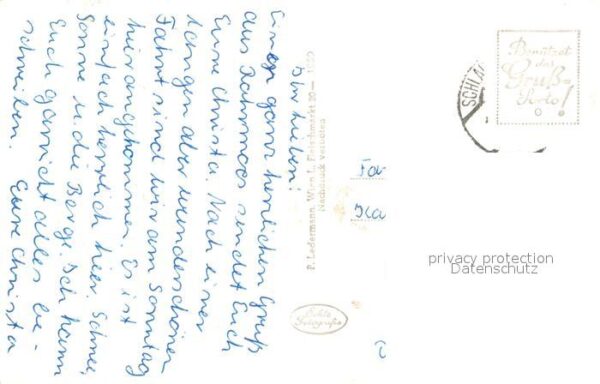 Ihr Lieben!
Einen ganz herzlichen Gruß
aus Rahmoos sendet Euch
Eure Christa. Nach einer
langen aber wunderschönen
Fahrt sind wir am Sonntag
hier angekommen. Es ist
einfach herrlich hier. Schnee,
Sonne u. die Berge. Ich kann
Euch garnicht alles be-
schreiben. Eure Christa
P. Ledermann, Wien I., Fleischmarkt 20 — 1950
Nachdruck verboten
Echte
Fotografie
Fa
Benützet
das
Gruß-
Porto!
SCHLA
privacy protection
Datenschutz